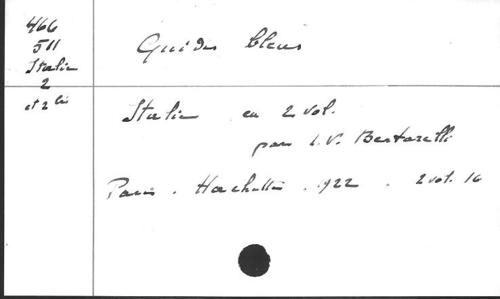 466
511
Italie
2
et 2 bis
Guides bleus
Italie en 2 vol.
par L.V. Bertarelli
Paris. Hachette. 1922. 2 vol. 16